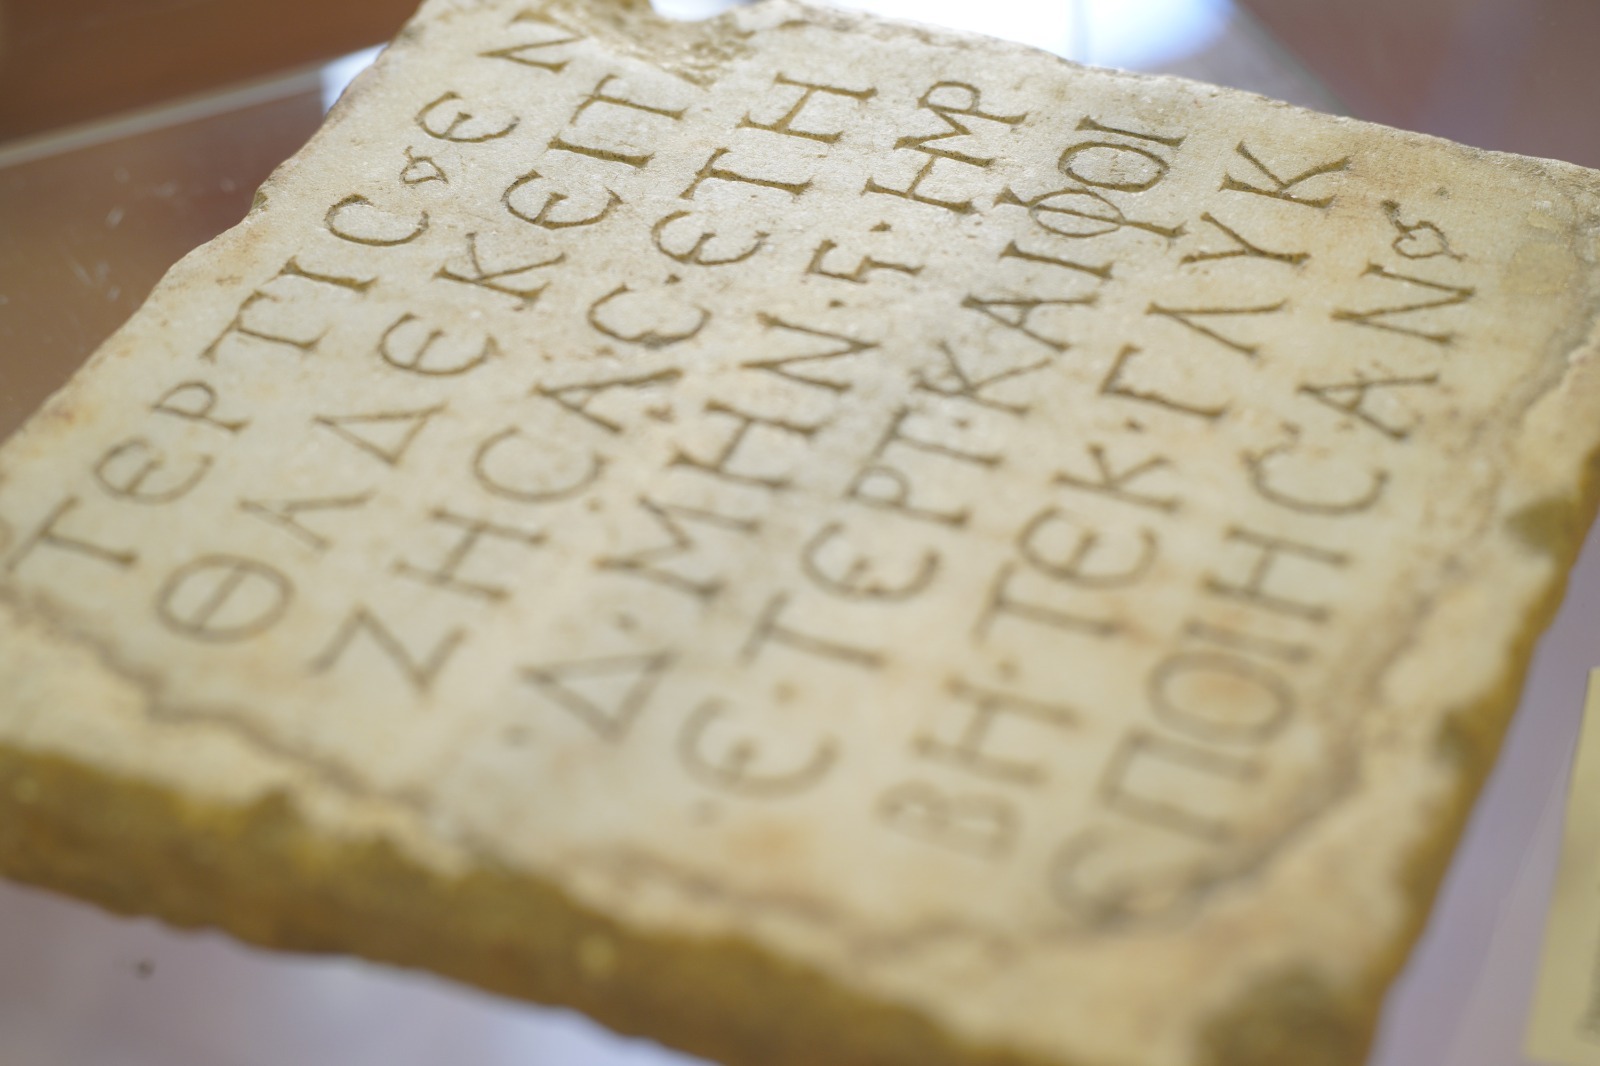 ΤΕΡΤΙϹ ❦ ΕΝ
ΘΛΔΕΚΕΙΤ
ΖΗϹΑϹ·ΕΤΗ
Δ·ΜΗΝ·Ϛ·ΗΜΡ
Ε·ΤΕΡΤ·ΚΑΙΦΟΙ
ΒΗ·ΤΕΚ·ΓΛΥΚ
ΕΠΟΙΗϹΑΝ ❦